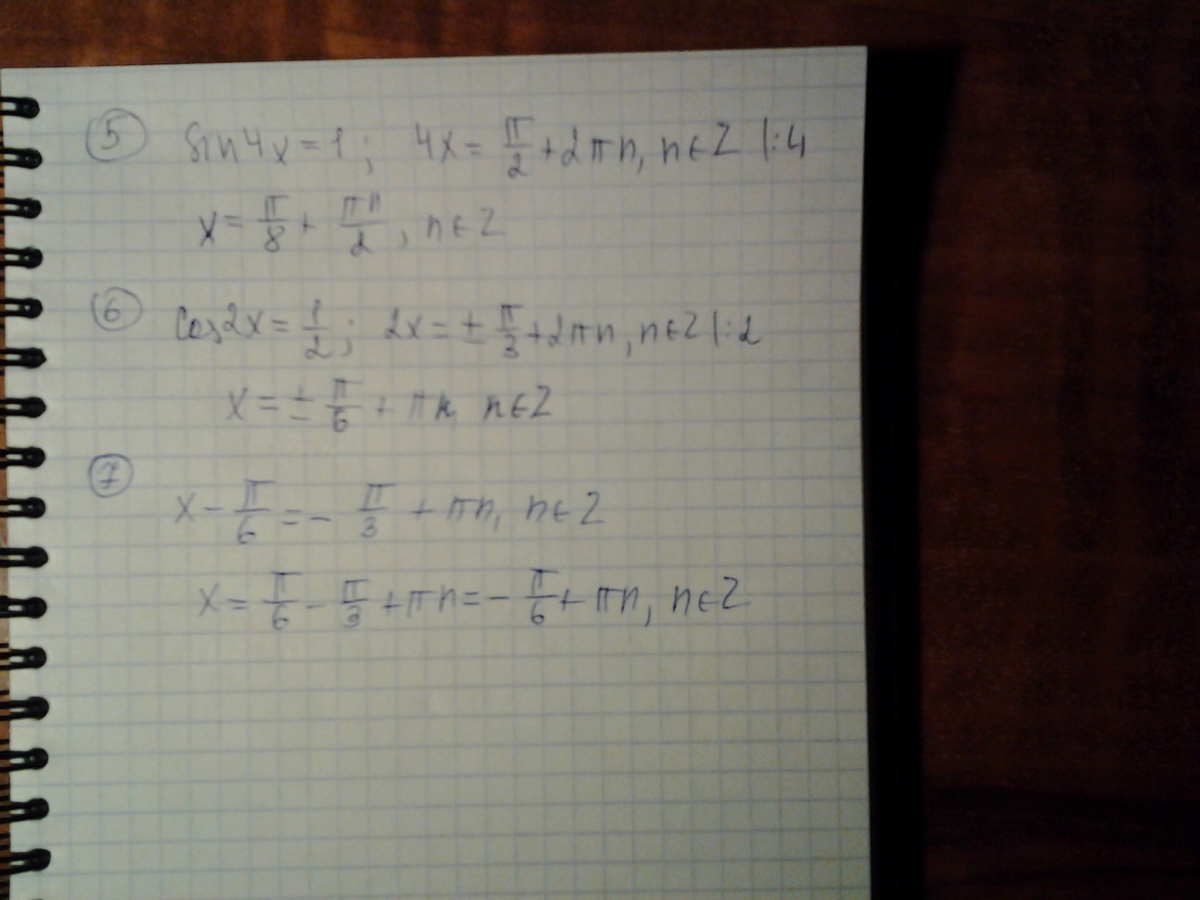 ⑤ sin4x = 1; 4x = π/2 + 2πn, n∈Z |:4
x = π/8 + πn/2, n∈Z
⑥ cos2x = 1/2; 2x = ± π/3 + 2πn, n∈Z |:2
x = ± π/6 + πn, n∈Z
⑦
x − π/6 = − π/3 + πn, n∈Z
x = π/6 − π/3 + πn = − π/6 + πn, n∈Z